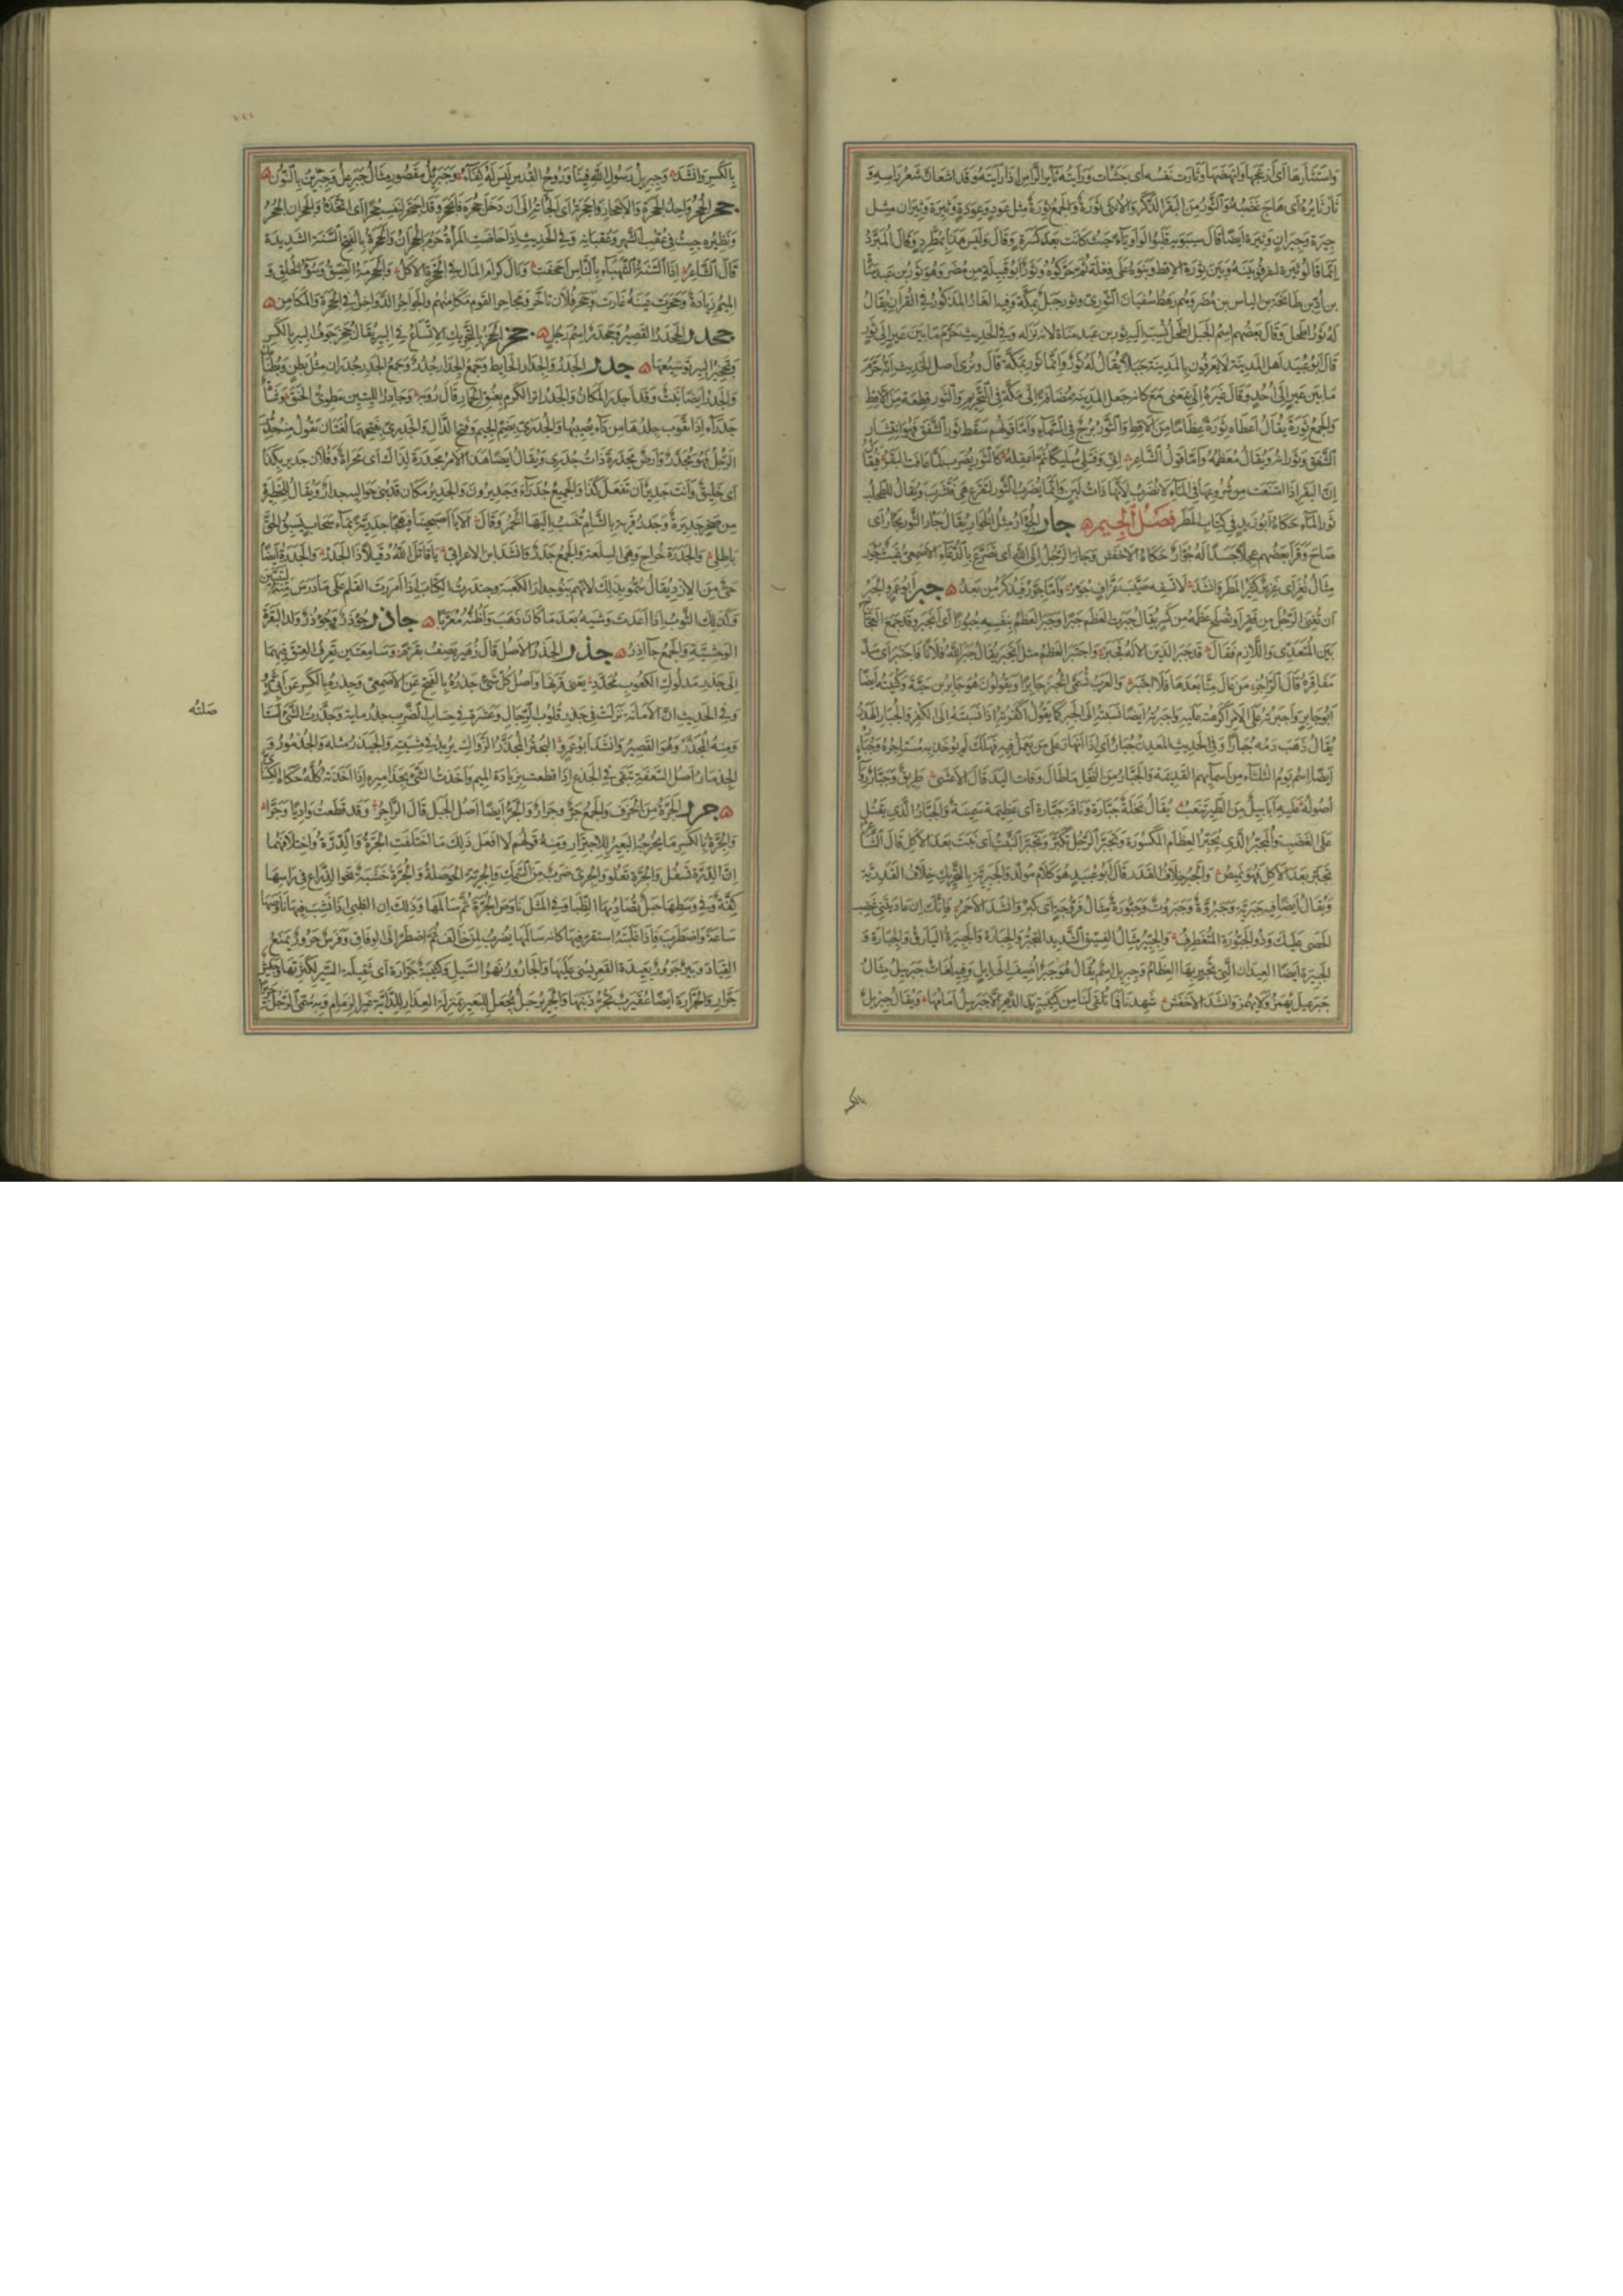 واستثارها اى ازعجها وانهضها وثارت نفسه اى جشأت ورايته ثاير الراس اذا رايته وقد اشعان شعر راسه و
ثار ثايره اى هاج غضبه والثور من البقر الذكر والانثى ثورة والجمع ثورة مثل عود وعودة وثيرة وثيران مثل
جيرة وجيران وثيرة ايضا قال سيبويه قلبوا الواو ياء حيث كانت بعد كسرة وقال وليس هذا بمطرد وقال المبرد
انما قالوا ثيرة ليفرقوا بينه وبين ثورة الاقط وبنوه على فعلة ثم حركوه وثور ابو قبيلة من مضر وهو ثور بن عبد مناة
بن اد بن طابخة بن الياس بن مضر وهم رهط سفيان الثورى وثور جبل بمكة وفيه الغار المذكور فى القرآن يقال
له ثور اطحل وقال بعضهم اسم الجبل اطحل نسب اليه ثور بن عبد مناة لانه نزله وفى الحديث حرم ما بين عير الى ثور
قال ابو عبيد اهل المدينة لا يعرفون بالمدينة جبلا يقال له ثور وانما ثور بمكة قال ونرى اصل الحديث انه حرم
ما بين عير الى احد وقال غيره الى بمعنى مع كانه جعل المدينة مضافة الى مكة فى التحريم والثور قطعة من الاقط
والجمع ثورة يقال اعطاه ثورة عظاما من الاقط والثور برج فى السماء واما قولهم سقط ثور الشفق فهو انتشار
الشفق وثورانه ويقال معظمه واما قول الشاعر انى وقتلى سليكا ثم اعقله كالثور يضرب لما عافت البقر فيقال
ان البقر اذا امتنعت من شروعها فى الماء لا تضرب لانها ذات لبن وانما يضرب الثور لتفزع هى فتشرب ويقال للطحلب
ثور الماء حكاه ابو زيد فى كتاب المطر فصل الجيم جار الجؤار مثل الخوار يقال جار الثور يجار اى
صاح وقرأ بعضهم عجلا جسدا له جؤار حكاه الاخفش وجار الرجل الى الله اى تضرع بالدعاء الاصمعى غيث جؤر
مثال نغر اى غزير كثير المطر وانشد لا تسقه صيب عزاف جؤر واما جور فيذكر من بعد جبر ابو عمرو الجبر
ان تغنى الرجل من فقر او تصلح عظمه من كسر يقال جبرت العظم جبرا وجبر العظم بنفسه جبورا اى انجبر وقد جمع العجاج
بين المتعدى واللازم فقال قد جبر الدين الاله فجبر واجتبر العظم مثل انجبر يقال جبر الله فلانا فاجتبر اى سد
مفاقره قال الراجز من عال منا بعدها فلا اجتبر والعرب تسمى الخبز جابرا ويقولون هو جابر بن حبة وكنيته ايضا
ابو جابر واجبرته على الامر اكرهته عليه واجبرته ايضا نسبته الى الجبر كما يقول اكفرته اذا نسبته الى الكفر والجبار الهدر
يقال ذهب دمه جبارا وفى الحديث المعدن جبار اى اذا انهار على من يعمل فيه فهلك لم يؤخذ به مستاجره وجبار
ايضا اسم يوم الثلثاء من اسمائهم القديمة والجبار من النخل ما طال وفات اليد قال الاعشى طريق وجبار رواء
اصوله عليه ابابيل من الطير تنعب يقال نخلة جبارة وناقة جبارة اى عظيمة سمينة والجبار الذى يقتل
على الغضب والمجبر الذى يجبر العظام المكسورة وتجبر الرجل تكبر وتجبر النبت اى نبت بعد الاكل قال الشاعر
تجبر بعد الاكل فهو نميص والجبر خلاف القدر قال ابو عبيد هو كلام مولد والجبرية بالتحريك خلاف القدرية
ويقال ايضا فيه جبرية وجبروة وجبروت وجبورة مثال فروجة اى كبر وانشد الاحمر فانك ان عاديتنى غضب
الحصى عليك وذو الجبورة المتغطرف والجبير مثال الفسيق الشديد التجبر والجبارة والجبيرة اليارق والجبارة و
الجبيرة ايضا العيدان التى تجبر بها العظام وجبريل اسم يقال هو جبر اضيف الى ايل وفيه لغات جبرئيل مثال
جبرعيل يهمز ولا يهمز وانشد الاخفش شهدنا فما تلقى لنا من كتيبة يد الدهر الا جبرئيل امامها ويقال جبريل
بالكسر
بالكسر وانشد وجبريل رسول الله فينا وروح القدس ليس له كفاء وجبرئل مقصور مثال جبرعل وجبرين بالنون
جحر الجحر واحد الجحرة والاجحار واجحرته اى الجاته الى ان دخل جحره فانجحر وقد اجتحر لنفسه جحرا اى اتخذه والجحران الجحر
ونظيره جيت فى عقب الشهر وعقبانه وفى الحديث اذا حاضت المرأة حرم الجحران والجحرة بالفتح السنة الشديدة
قال الشاعر اذا السنة الشهباء بالناس اجحفت ونال كرام المال فى الجحرة الاكل والجحرمة الضيق وسوء الخلق و
الميم زيادة وجحرت عينه غارت وجحر فلان تاخر ومجاحر القوم مكامنهم والجواحر الدواخل فى الجحرة والمكامن
جحدر الجحدر القصير وجحدر اسم رجل جخر الجخر بالتحريك الاتساع فى البير يقال جخر جوف البير بالكسر
وتجخير البير توسيعها جدر الجدر والجدار الحايط وجمع الجدار جدر وجمع الجدر جدران مثل بطن وبطنان
والجدر ايضا نبت وقد اجدر المكان والجدر اثر الكدم بعنق الحمار قال رؤبة او جادر الليتين مطوى الحنق
جدراء اذا تقوب جلدها من داء يصيبها والجدرى بضم الجيم وفتح الدال والجدرى بفتحهما لغتان تقول منه جدر
الرجل فهو مجدر وارض مجدرة ذات جدرى ويقال ايضا هذا الامر مجدرة لذاك اى محراة وفلان جدير بكذا
اى خليق وانت جدير ان تفعل كذا والجميع جدراء وجديرون والجدير مكان قد بنى حواليه جدار ويقال للحظيرة
من صخر جديرة وجدر قرية بالشام تنسب اليها الخمر وقال الا يا اصبحينا فيهجا جدرية بماء سحاب يسبق الحق
باطلى والجدرة خراج وهى السلعة والجمع جدر وانشد ابن الاعرابى يا قاتل الله دقيلا ذا الجدر والجدرة ايضا
حى من الازد يقال سموا بذلك لانهم بنوا جدار الكعبة وجندرت الكتاب اذا امررت القلم على ما درس منه ليتبين
وكذلك الثوب اذا اعدت وشيه بعد ما كان ذهب واظنه معربا جاذر جؤذر وجؤذر ولد البقرة
الوحشية والجمع جآذر جذر الجذر الاصل قال زهير يصف بقرة وسامعتين تعرف العتق فيهما
الى جذر مدلوك الكعوب محدد يعنى قرنها واصل كل شىء جذره بالفتح عن الاصمعى وجذره بالكسر عن ابى عمرو
وفى الحديث ان الامانة نزلت فى جذر قلوب الرجال وعشرة فى حساب الضرب جذر ماية وجذرت الشىء استاصلته
صلته
ومنه المجذر وهو القصير وانشد ابو عمرو البحتر المجذر الزوال يريد فى مشيته والجيذر مثله والجذمور و
الجذمار اصل السعفة تبقى فى الجذع اذا قطعت بزيادة الميم واخذت الشىء بجذاميره اذا اخذته كله حكاه الكسائى
جرر الجرة من الخزف والجمع جر وجرار والجر ايضا اصل الجبل قال الراجز وقد قطعت واديا وجرا
والجرة بالكسر ما يخرجه البعير للاجترار ومنه قولهم لا افعل ذلك ما اختلفت الجرة والدرة واختلافهما
ان الدرة تسفل والجرة تعلو والجرى ضرب من السمك والجرية الحوصلة والجرة خشبة نحو الذراع فى راسها
كفة وفى وسطها حبل يصاد بها الظباء وفى المثل ناوص الجرة ثم سالمها وذلك ان الظبى اذا نشب فيها ناوصها
ساعة واضطرب فاذا غلبته استقر فيها كانه سالمها يضرب لمن خالف ثم اضطر الى الوفاق وفرس جرور يمنع
القياد وبير جرور بعيدة القعر يسنى عليها والجارور نهر السيل وكتيبة جرارة اى ثقيلة السير لكثرتها وجيش
جرار والجرارة ايضا عقيرب تجر ذنبها والجرير حبل يجعل للبعير بمنزلة العذار للدابة غير الزمام وبه سمى الرجل جريرا